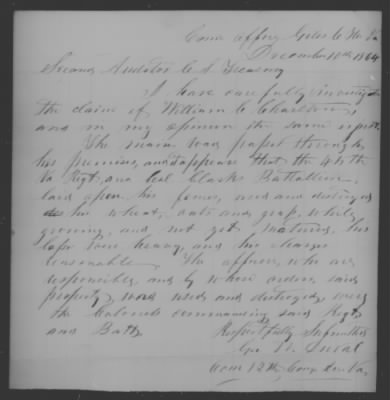 Coms office, Giles C.H. Va
December 10th 1864
Second Auditor C S Treasury
I have carefully investigated
the claim of William C Charlton,
and in my opinion the same is just.
The man was passed through
his premises, and it appears that the 45th
Va Regt, and Col Clarks Battallion,
laid upon his farm, used and destroyed
his wheat, oats and grass, while
growing, and not yet matured, his
loss been heavy, and his charges
reasonable. The officers, who are
responsible, and by whose orders, said
property was used and destroyed, were
the Colonels commanding said Regt
and Batt.
Respectfully Submitted
Com 12th Cong Dist Va.